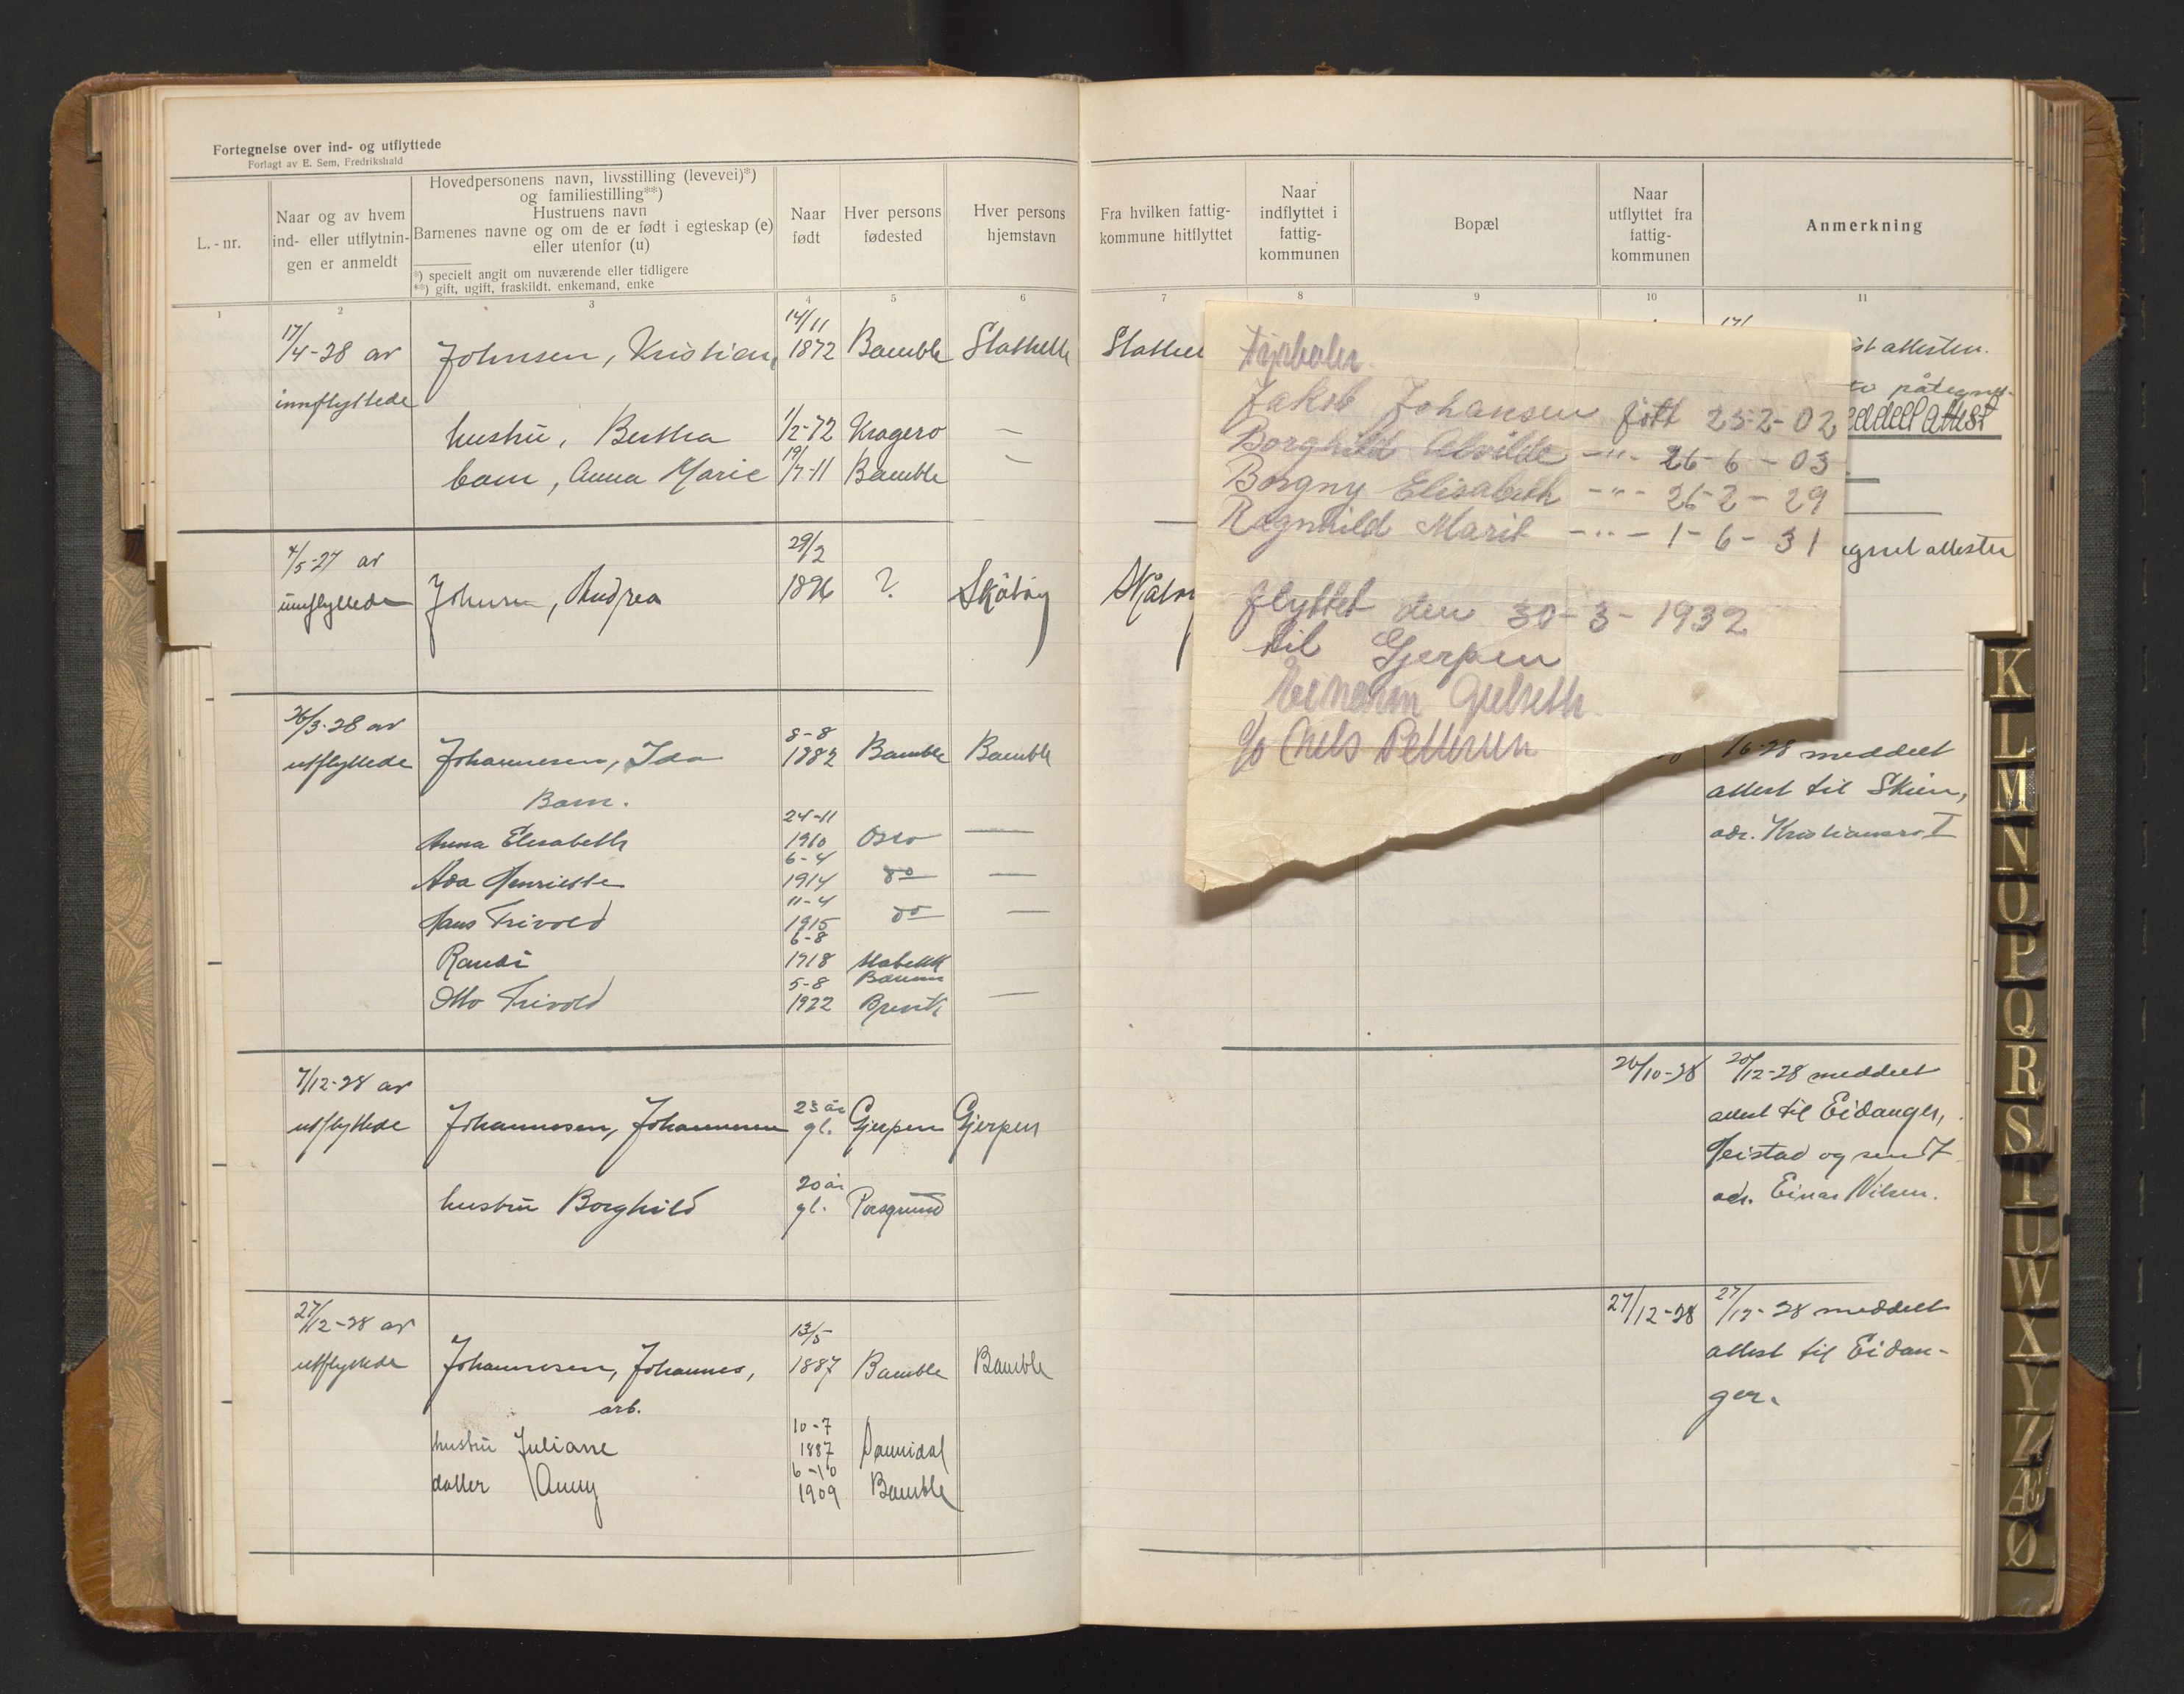 Fortegnelse over ind- og utflyttede
Forlagt av E. Sem, Fredrikshald
L.-nr.
Naar og av hvem
ind- eller utflytnin-
gen er anmeldt
Hovedpersonens navn, livsstilling (levevei)*)
og familiestilling**)
Hustruens navn
Barnenes navne og om de er født i egteskap (e)
eller utenfor (u)
*) specielt angit om nuværende eller tidligere
**) gift, ugift, fraskildt. enkemand, enke
Naar
født
Hver persons
fødested
Hver persons
hjemstavn
1 2 3 4 5 6
17/4-28 av Johnsen, Kristian, 14/11 1872 Bamble Stathelle
innflyttede
hustru, Bertha 1/2-72 Kragerø —
barn, Anna Marie 19/7-11 Bamble —
4/5-27 av
innflyttede Johnsen, Andrea 29/2 1896 ? Skåtøy
26/3-28 av
utflyttede Johannesen, Ida 8-8 1882 Bamble Bamble
Barn.
Anna Elisabeth 24-11 1910 Oslo —
Ada Henriette 6-4 1914 do —
Hans Trivold 11-4 1915 do —
Randi 6-8 1918 Stabekk Bærum
Otto Trivold 5-8 1922 Brevik —
7/12-28 av
utflyttede Johannesen, Johannesen 23 år gl. Gjerpen Gjerpen
hustru Borghild 20 år gl. Porsgrund
27/12-28 av
utflyttede Johannesen, Johannes, 13/5 1887 Bamble Bamble
arb.
hustru Juliane 10-7 1887 Sannidal
datter Anny 6-10 1909 Bamble
Fra hvilken fattig-
kommune hitflyttet
Naar
indflyttet i
fattig-
kommunen
Bopæl
Naar
utflyttet fra
fattig-
kommunen
Anmerkning
7 8 9 10 11
Stathel
Skåtøy
attesten.
påtegnet
meddelt attest
attester
Jakob Johansen født 25-2-02
Borghild Alvilde -"- 26-6-03
Borgny Elisabeth -"- 26-2-29
Ragnhild Marit -"- 1-6-31
flyttet den 30-3-1932
til Gjerpen
c/o Nels Pettersen
16-28 meddelt
attest til Skien,
adr.
20/10-28 20/12-28 meddelt
attest til Eidanger,
Heistad og sendt
adr. Einar Nilsen.
27/12-28 27/12-28 meddelt
attest til Eidan-
ger.
K
L
M
N
O
P
Q
R
S
T
U
W
X
Y
Z
Æ
Ø